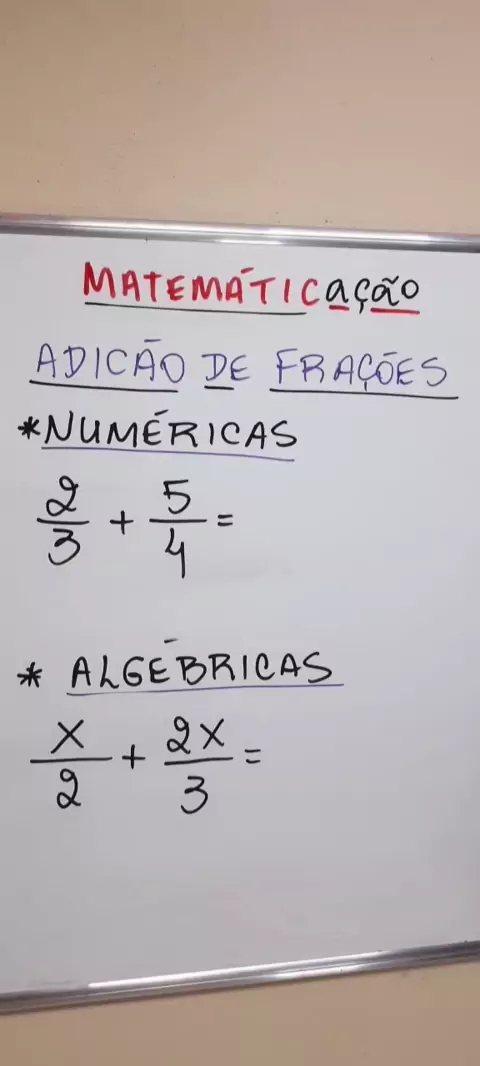 MATEMÁTICAÇÃO
ADICÃO DE FRAÇÕES
*NUMÉRICAS
2/3 + 5/4 =
* ALGÉBRICAS
x/2 + 2x/3 =